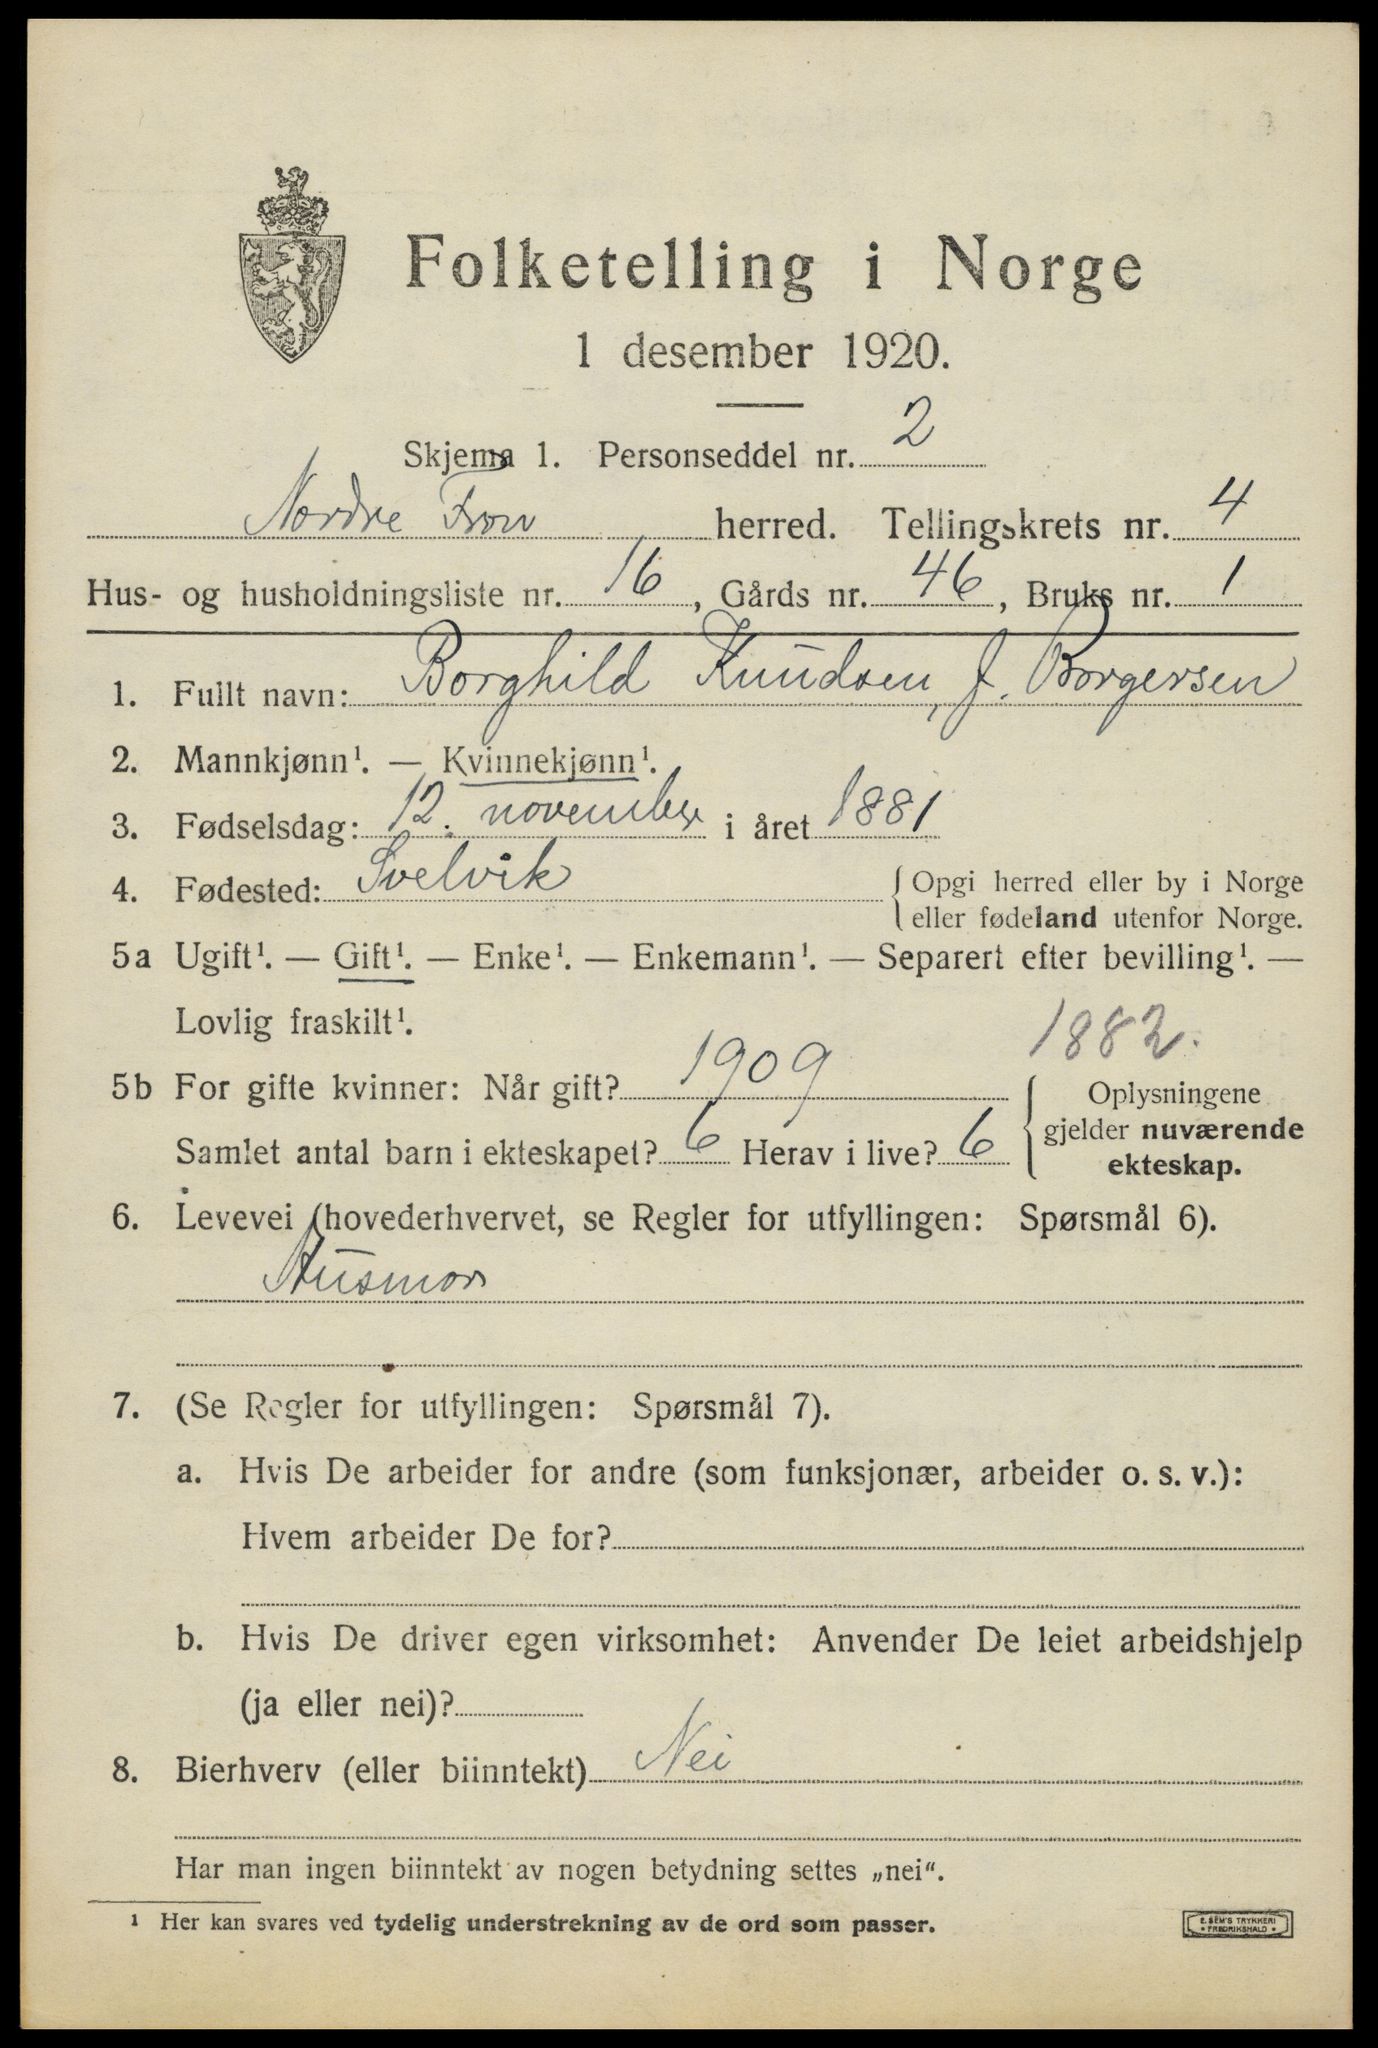 Folketelling i Norge
1 desember 1920.
Skjema 1. Personseddel nr. 2
Nordre Fron herred. Tellingskrets nr. 4
Hus- og husholdningsliste nr. 16, Gårds nr. 46, Bruks nr. 1
1. Fullt navn: Borghild Knudsen, f. Borgersen
2. Mannkjønn¹. — Kvinnekjønn¹.
3. Fødselsdag: 12. november i året 1881
4. Fødested: Svelvik { Opgi herred eller by i Norge
eller fødeland utenfor Norge.
5a Ugift¹. — Gift¹. — Enke¹. — Enkemann¹. — Separert efter bevilling¹. —
Lovlig fraskilt¹.
1882.
5b For gifte kvinner: Når gift? 1909
Samlet antal barn i ekteskapet? 6 Herav i live? 6
{ Oplysningene
gjelder nuværende
ekteskap.
6. Levevei (hovederhvervet, se Regler for utfyllingen: Spørsmål 6).
Husmor
7. (Se Regler for utfyllingen: Spørsmål 7).
a. Hvis De arbeider for andre (som funksjonær, arbeider o. s. v.):
Hvem arbeider De for?
b. Hvis De driver egen virksomhet: Anvender De leiet arbeidshjelp
(ja eller nei)?
8. Bierhverv (eller biinntekt) Nei
Har man ingen biinntekt av nogen betydning settes „nei“.
¹ Her kan svares ved tydelig understrekning av de ord som passer.
E. SEM'S TRYKKERI
• FREDRIKSHALD •